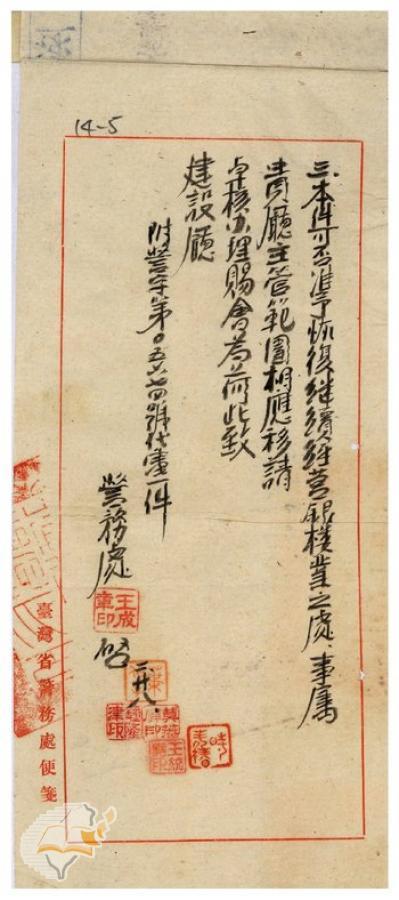 14-5
三、本件可否準予恢復繼續經營銀樓業之處、事屬
貴廳主管範圍相應移請
卓核办理賜會為荷此致
建設廳
附警字第〇五六七四號代電一件
警務處
王成章印
啓
三、廿八、
臺灣省警務處便箋